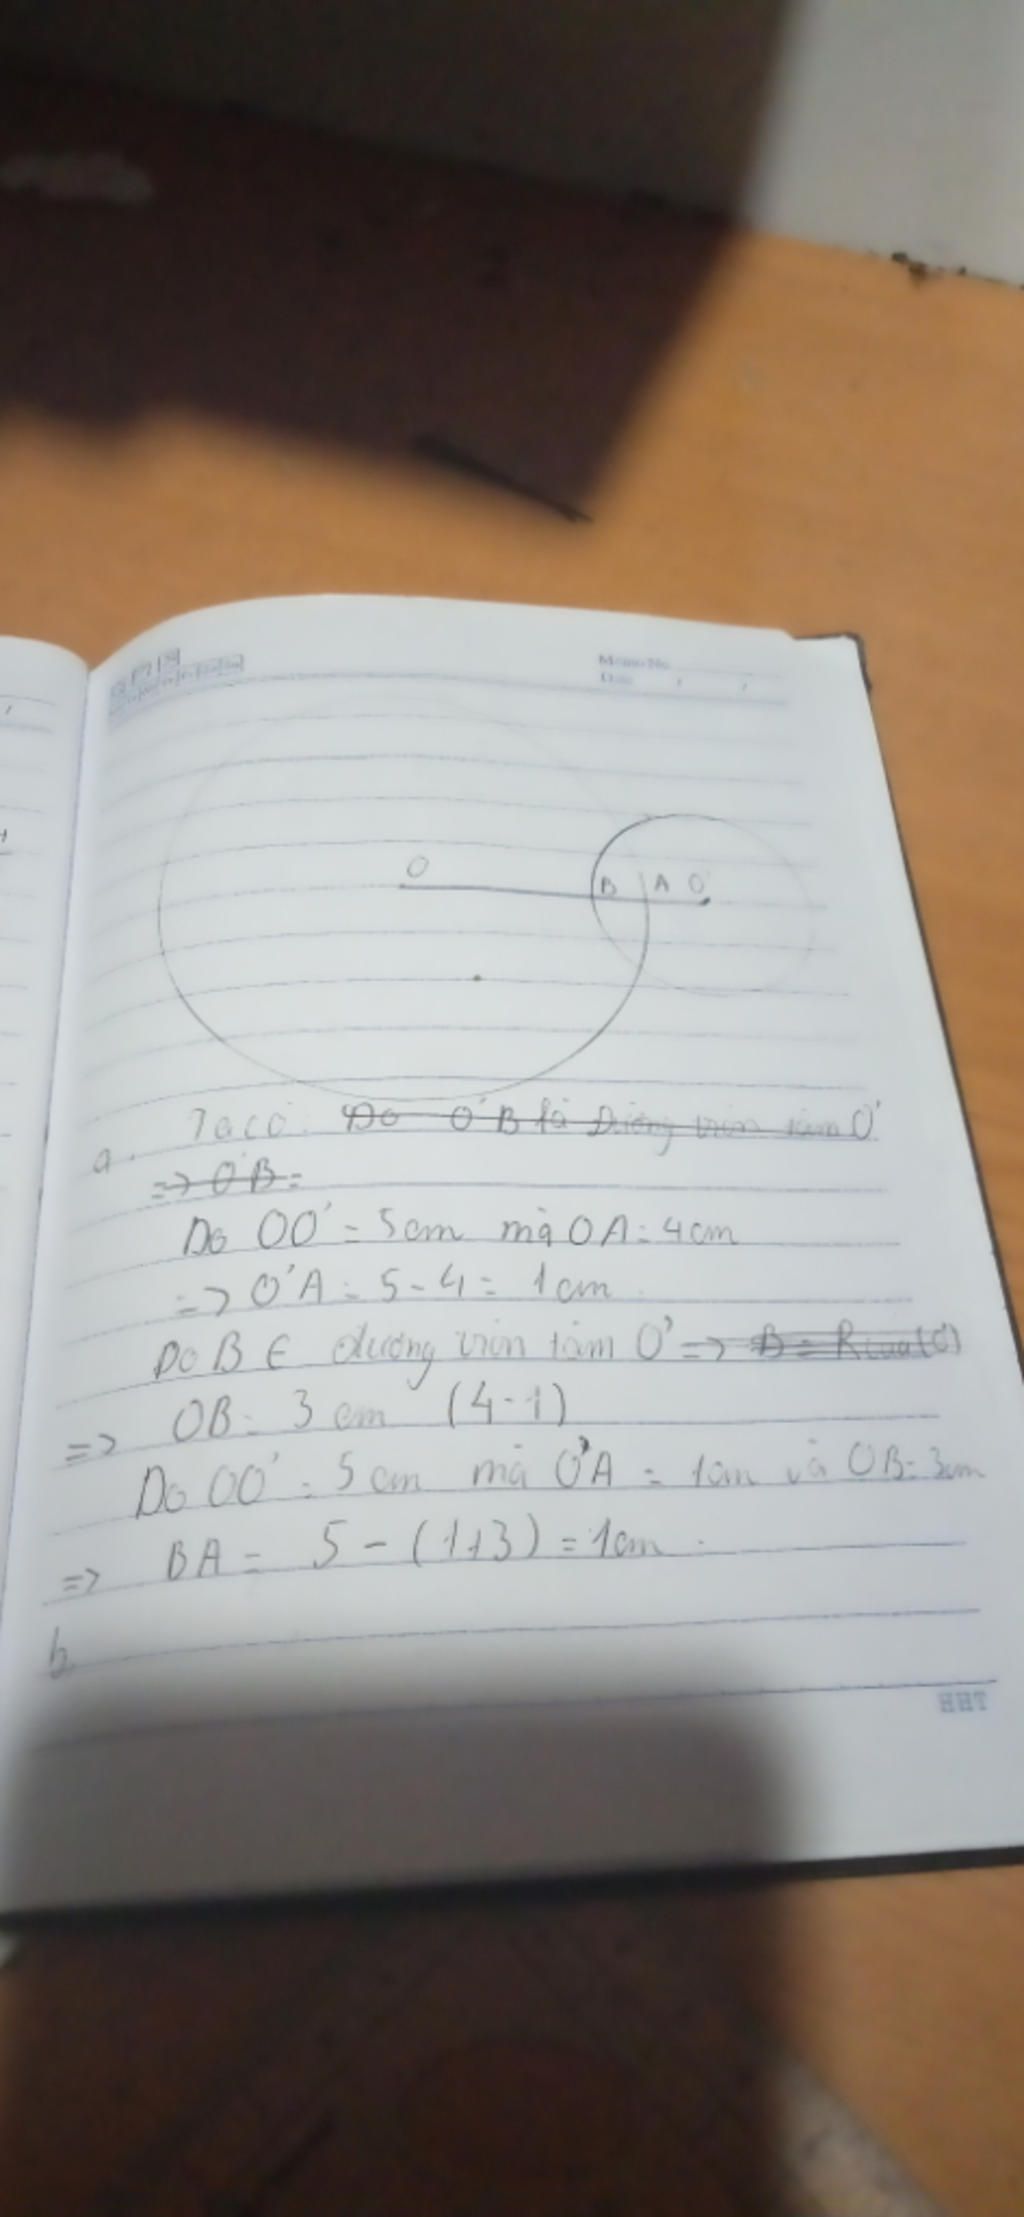 Memo No.
Date / /
O B A O'
Ta có: Do O'B là Đường tròn tâm O'
a.
=> O'B =
Do OO' = 5cm mà OA = 4cm
=> O'A = 5 - 4 = 1cm
Do B ∈ đường tròn tâm O' => B = R của (O')
=> OB = 3 cm (4-1)
Do OO' = 5cm mà O'A = 1cm và OB = 3cm
=> BA = 5 - (1+3) = 1cm.
b
HHT